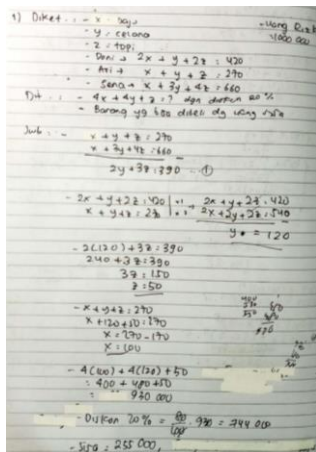 1) Diket : - x = baju
- y = celana
- z = topi
- Uang Rizk
1000 000
- Doni → 2x + y + 2z = 420
- Ari → x + y + z = 270
- Sena → x + 3y + 4z = 660
Dit : - 4x + 4y + z = ? dgn diskon 20 %
- Barang yg bisa dibeli dg uang
Jwb : - x + y + z = 270
x + 3y + 4z = 660 -
2y + 3z = 390 - ①
- 2x + y + 2z = 420 | x1 → 2x + y + 2z = 420
x + y + z = 270 | x2 2x + 2y + 2z = 540
y = 120
- 2(120) + 3z = 390
240 + 3z = 390
3z = 150
z = 50
- x + y + z = 270
x + 120 + 50 = 270
x = 270 - 170
x = 100
- 4(100) + 4(120) + 50
= 400 + 480 + 50
= 930 000
- Diskon 20% = 80/100 . 930 = 744 000
- Sisa = 255 000,